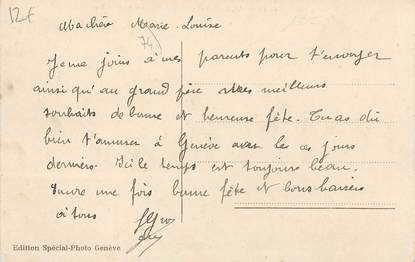 12€
Ma chère Marie-Louise
74)
Je me joins à mes parents pour t'envoyer
ainsi qu'au grand père nos meilleurs
souhaits de bonne et heureuse fête. Tu as dû
bien t'amuser à Genève avec les ces jours
derniers. Ici le temps est toujours beau.
Encore une fois bonne fête et bons baisers
à tous
Edition Spécial-Photo Genève